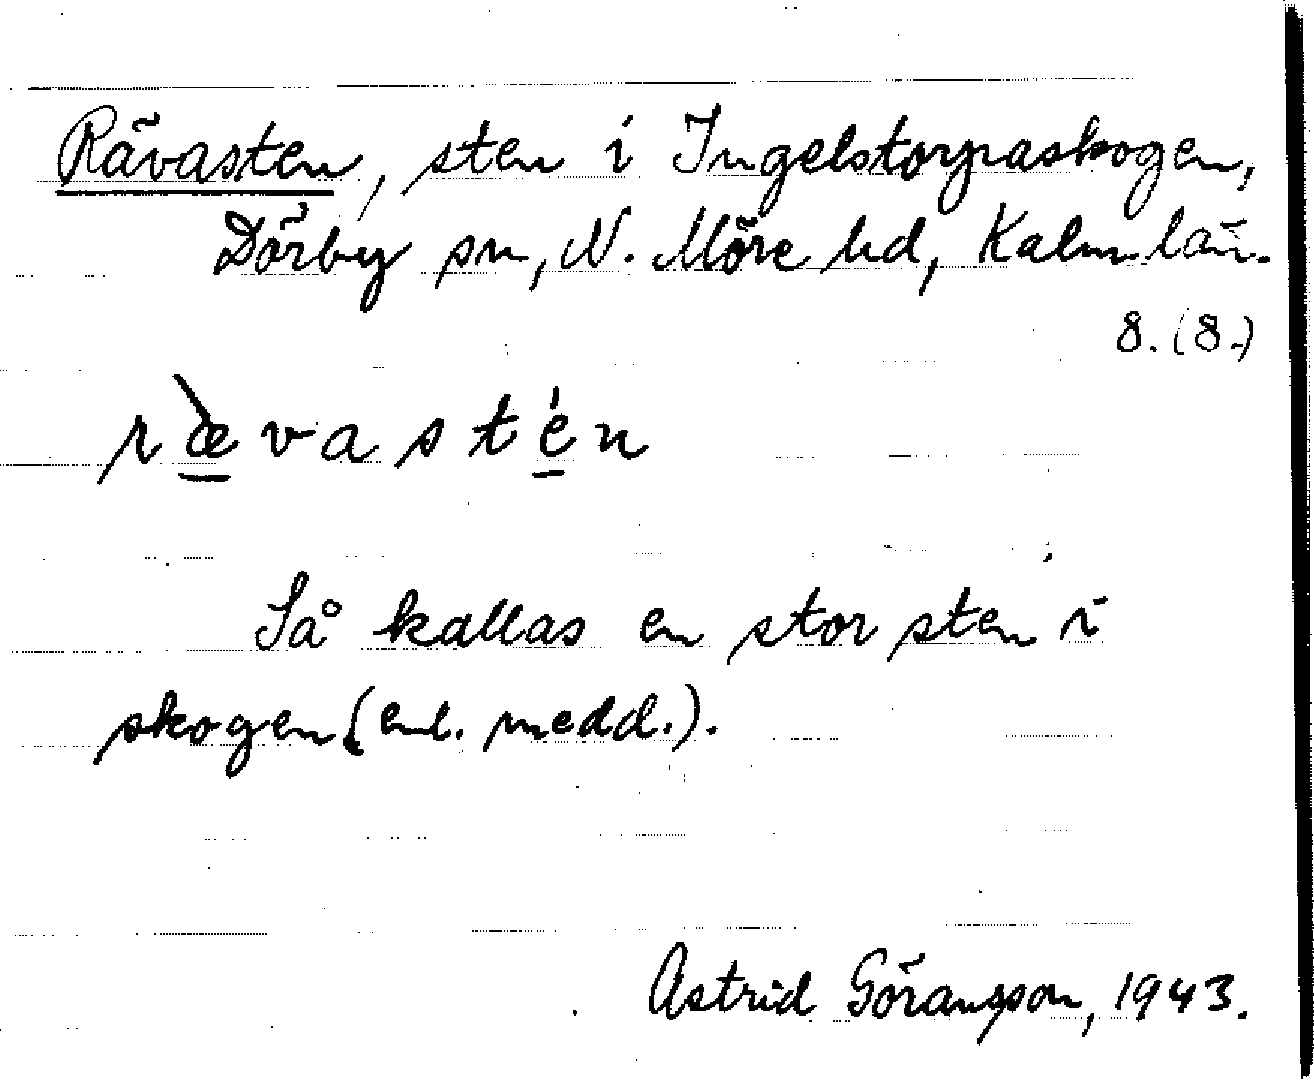 Rävasten, sten i Ingelstorpaskogen,
Dörby sn, N. Möre hd, Kalm. län.
8. (8.)
r æ̀ v a s t é n
Så kallas en stor sten i
skogen (enl. medd.).
Astrid Göransson, 1943.